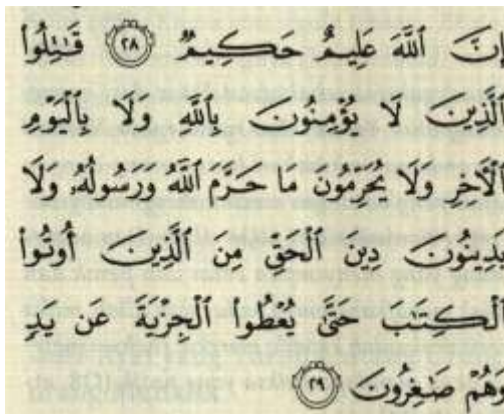 إِنَّ ٱللَّهَ عَلِيمٌ حَكِيمٌ ٢٨ قَٰتِلُوا۟
ٱلَّذِينَ لَا يُؤْمِنُونَ بِٱللَّهِ وَلَا بِٱلْيَوْمِ
ٱلْءَاخِرِ وَلَا يُحَرِّمُونَ مَا حَرَّمَ ٱللَّهُ وَرَسُولُهُۥ وَلَا
يَدِينُونَ دِينَ ٱلْحَقِّ مِنَ ٱلَّذِينَ أُوتُوا۟
ٱلْكِتَٰبَ حَتَّىٰ يُعْطُوا۟ ٱلْجِزْيَةَ عَن يَدٍ
وَهُمْ صَٰغِرُونَ ٢٩